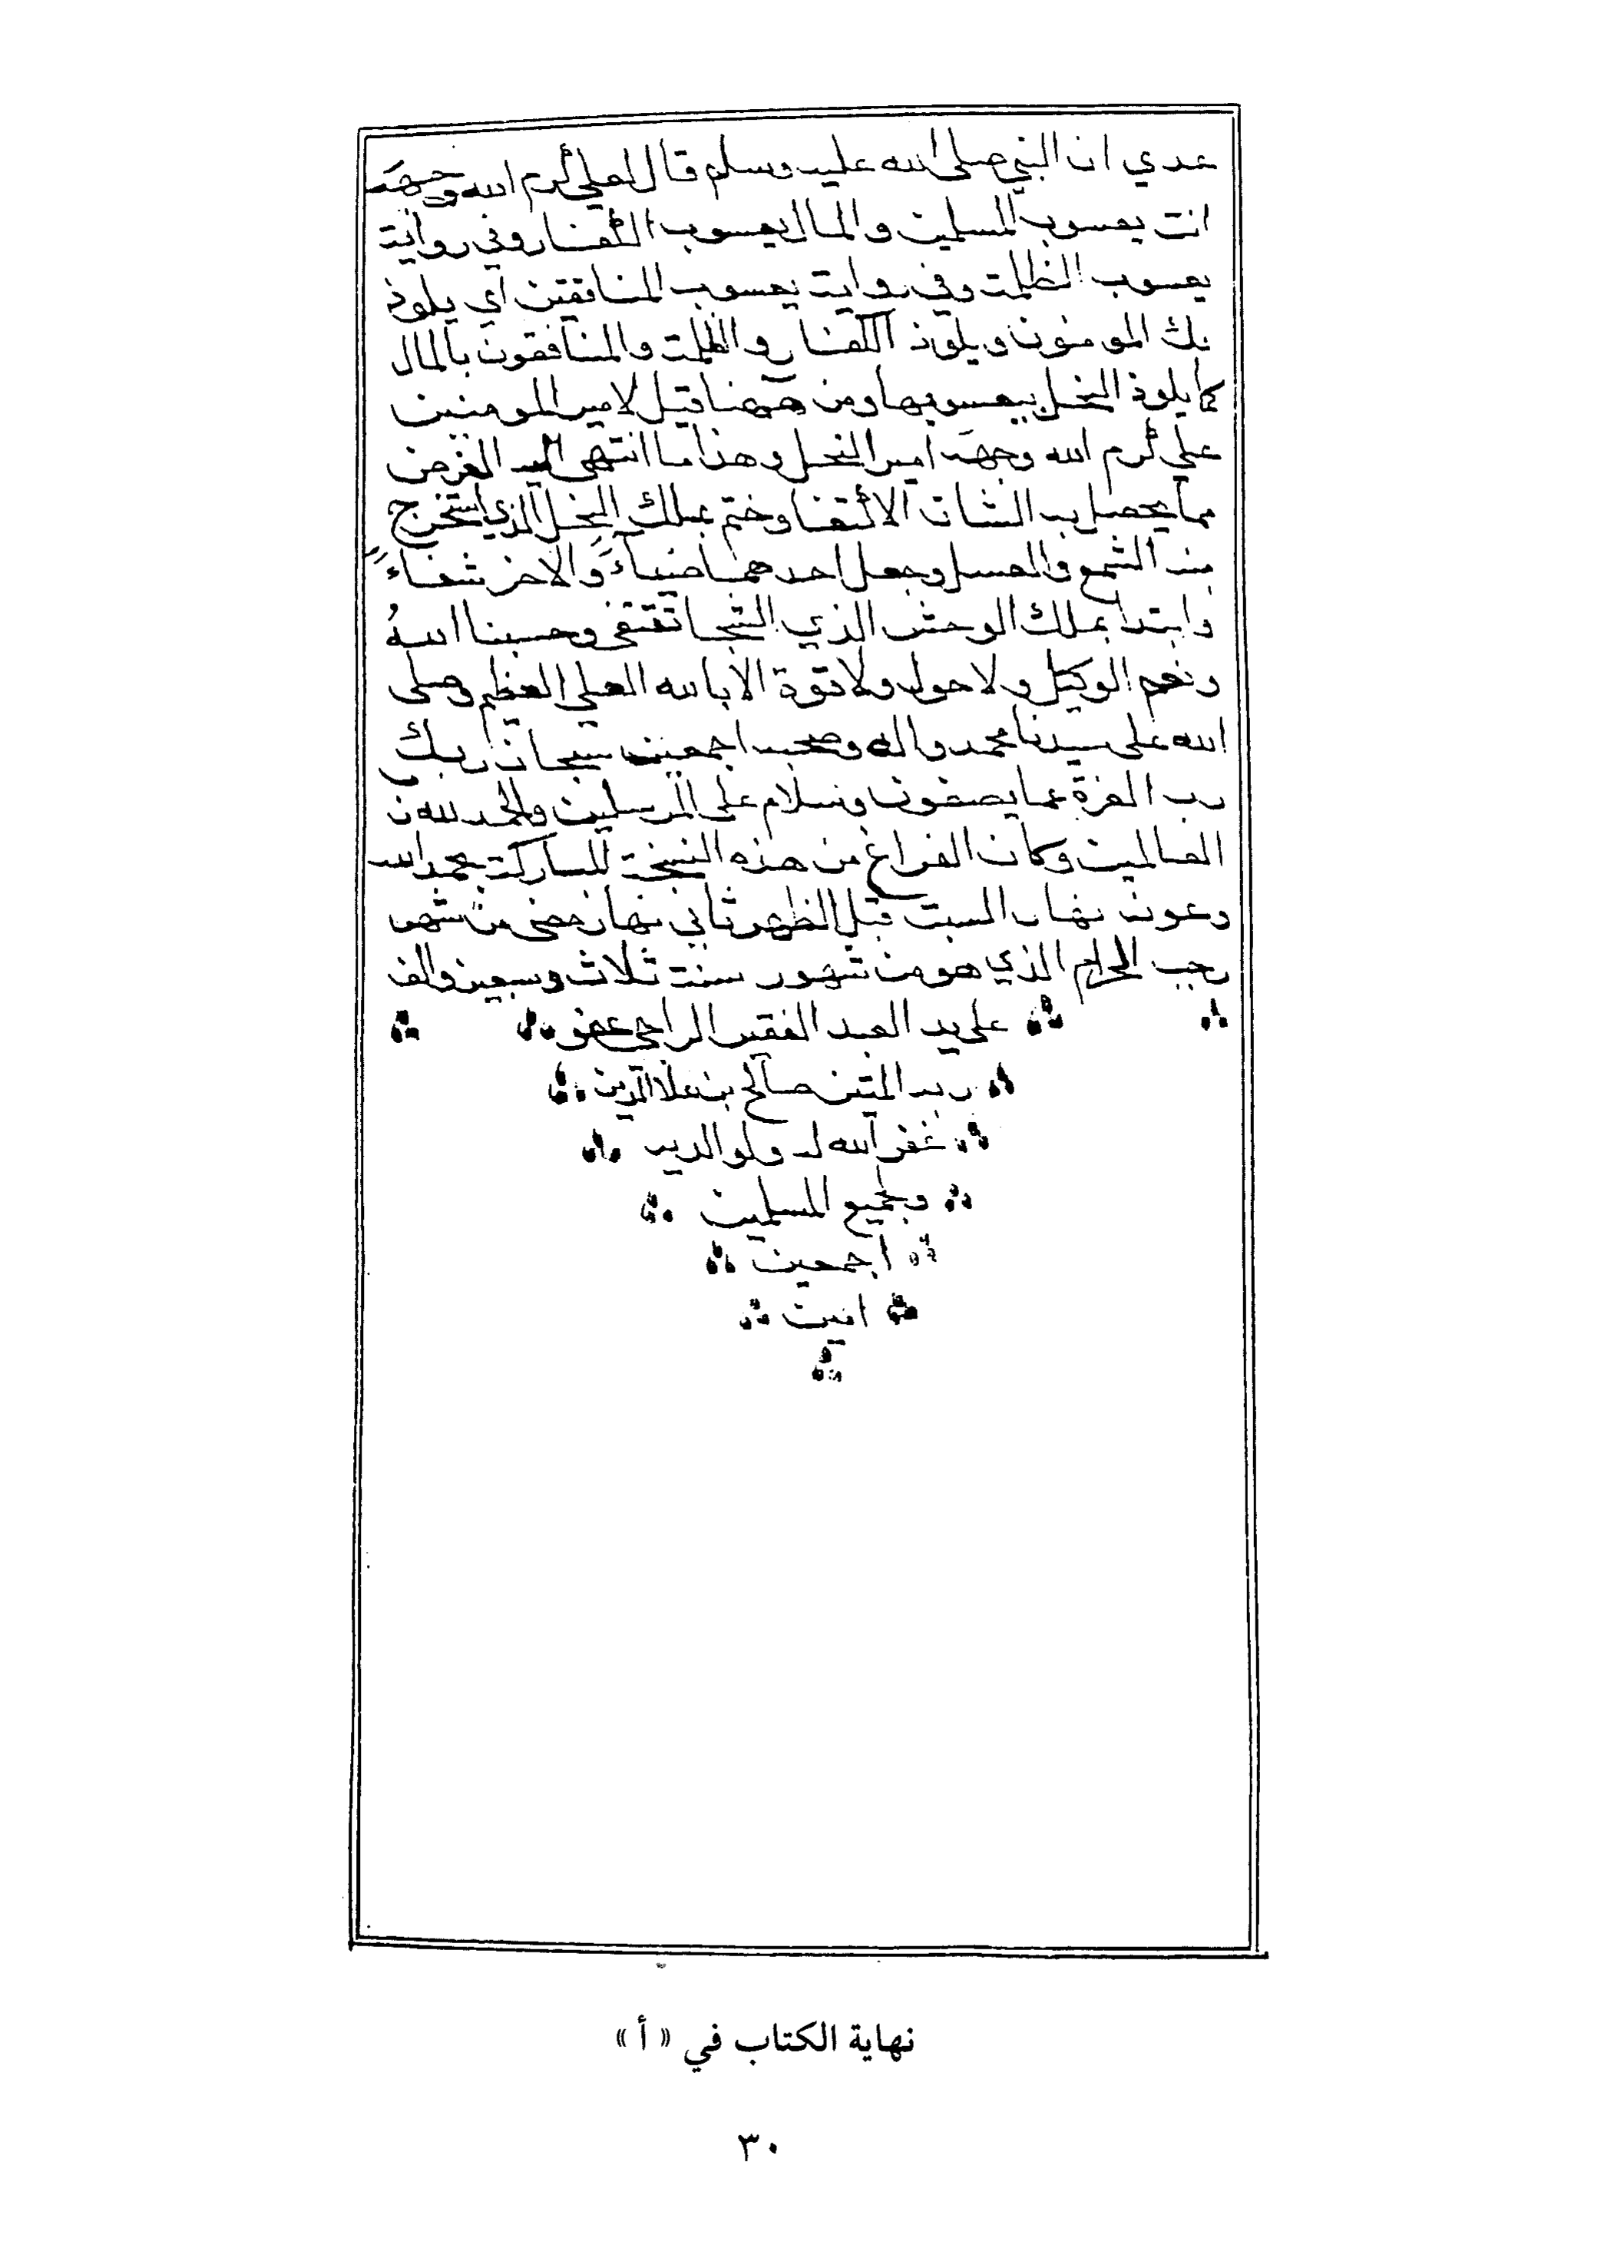 عدي ان النبي صلى الله عليه وسلم قال لعلي كرم الله وجهه
انت يعسوب المسلمين والمال يعسوب الكفار وفي رواية
يعسوب الظلمة وفي رواية يعسوب المنافقين اي يلوذ
بك المومنون ويلوذ الكفار والظلمة والمنافقون بالمال
كما يلوذ النحل بيعسوبها ومن ههنا قيل لامير المومنين
علي كرم الله وجهه امير النحل وهذا ما انتهى اليه الغرض
مما يحصل به الشان الاكتفا وختم بملك النحل الذي استخرج
منه الشمع والعسل وجعل احدهما ضياءً والاخر شفاءً
وابتدا بملك الوحش الذي الشجا تقتفى وحسبنا اللهُ
ونعم الوكيل ولا حول ولا قوة الا بالله العلي العظيم وصلى
الله على سيدنا محمد واله وصحبه اجمعين سبحان ربك
رب العزة عما يصفون وسلام على المرسلين والحمد لله ن
العالمين وكان الفراغ من هذه النسخة المباركة بحمد الله
وعونه نهار السبت قبل الظهر ثاني نهار مضى من شهر
رجب الحرام الذي هو من شهور سنة ثلاث وسبعين والف
على يد العبد الفقير الراجي عفو
ربه المتين صالح بن علا الدين
غفر الله له ولوالديه
ولجميع المسلمين
اجمعين
امين
نهاية الكتاب في « أ »
٣٠